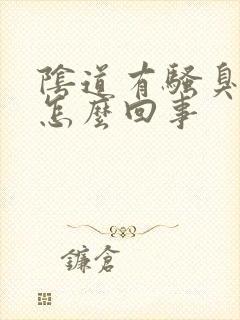 陰道有騷臭
怎麼回事
鐮倉